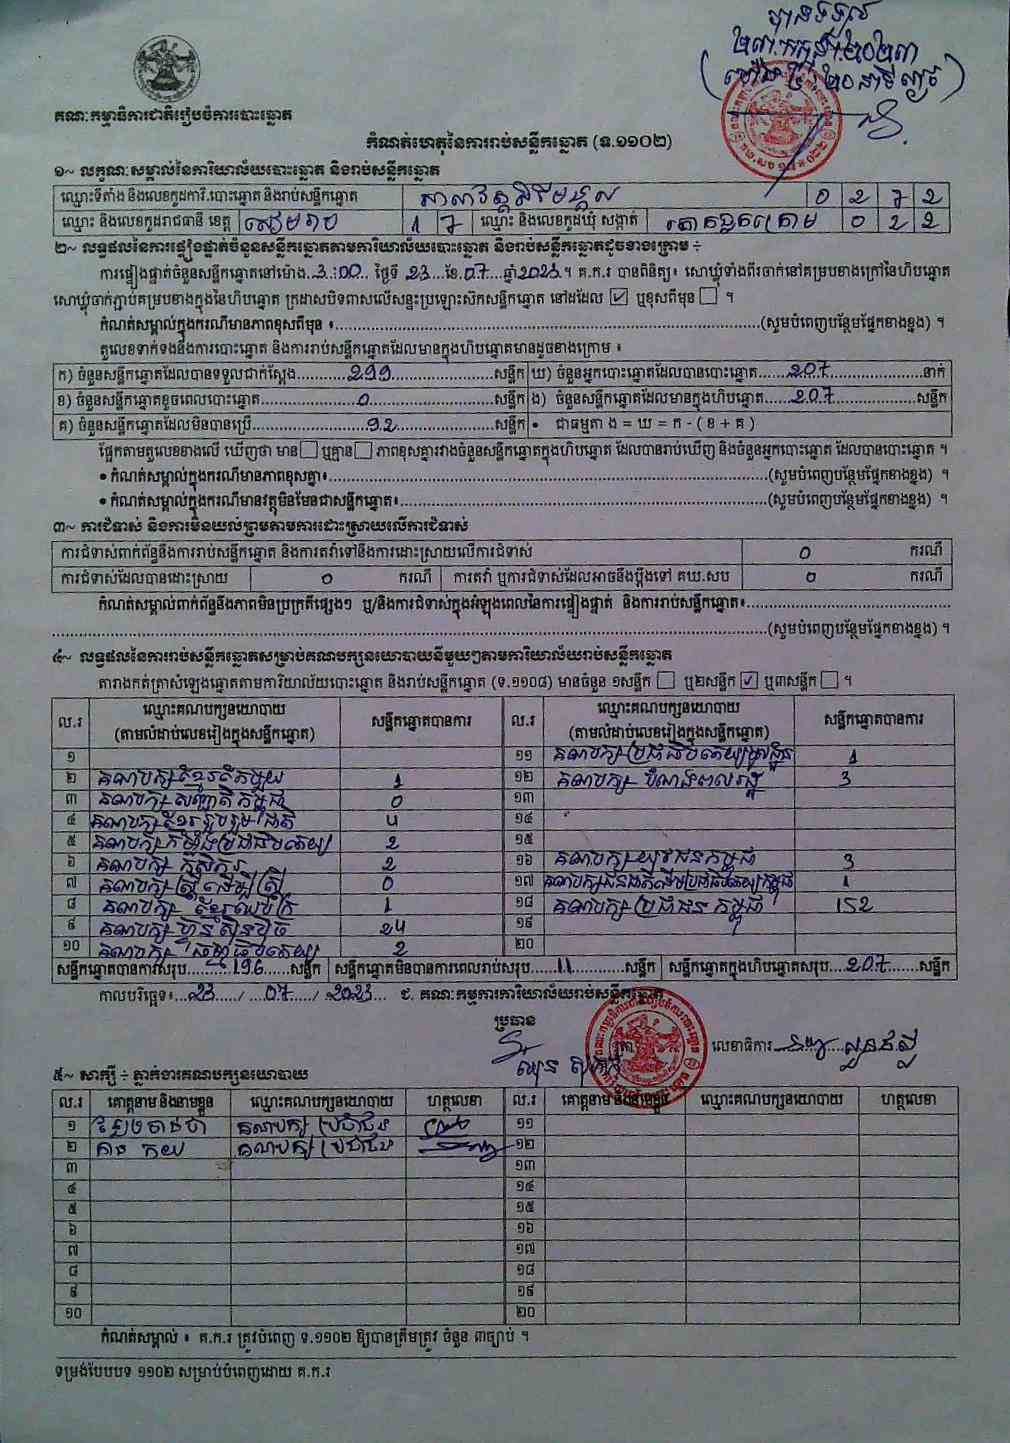 បានទទួល
២៣.កក្កដា.២០២៣
២០ នាទី ល្ងាច
គណៈកម្មាធិការជាតិរៀបចំការបោះឆ្នោត
កំណត់ហេតុនៃការរាប់សន្លឹកឆ្នោត (ទ.១១០២)
១~ លក្ខណៈសម្គាល់នៃការិយាល័យបោះឆ្នោត និងរាប់សន្លឹកឆ្នោត
ឈ្មោះទីតាំង និងលេខកូដការិ.បោះឆ្នោត និងរាប់សន្លឹកឆ្នោត 0 2 7 2
ឈ្មោះ និងលេខកូដរាជធានី ខេត្ត សៀមរាប 1 7 ឈ្មោះ និងលេខកូដឃុំ សង្កាត់ 0 2 2
២~ លទ្ធផលនៃការផ្ទៀងផ្ទាត់ចំនួនសន្លឹកឆ្នោតតាមការិយាល័យបោះឆ្នោត និងរាប់សន្លឹកឆ្នោតដូចខាងក្រោម ÷
ការផ្ទៀងផ្ទាត់ចំនួនសន្លឹកឆ្នោតនៅម៉ោង 3:00 ថ្ងៃទី 23 ខែ 07 ឆ្នាំ 2023 ។ គ.ក.រ បានពិនិត្យ៖ សោឃ្លុំទាំងពីរចាក់នៅគម្របខាងក្រៅនៃហិបឆ្នោត
សោឃ្លុំចាក់ភ្ជាប់គម្របខាងក្នុងនៃហិបឆ្នោត ក្រដាសបិទពាសលើសន្ទះប្រឡោះសិកសន្លឹកឆ្នោត នៅដដែល ☑ ឬខុសពីមុន ☐ ។
កំណត់សម្គាល់ក្នុងករណីមានភាពខុសពីមុន ៖ (សូមបំពេញបន្ថែមផ្នែកខាងខ្នង) ។
តួលេខទាក់ទងនឹងការបោះឆ្នោត និងការរាប់សន្លឹកឆ្នោតដែលមានក្នុងហិបឆ្នោតមានដូចខាងក្រោម ៖
ក) ចំនួនសន្លឹកឆ្នោតដែលបានទទួលជាក់ស្ដែង 299 សន្លឹក ឃ) ចំនួនអ្នកបោះឆ្នោតដែលបានបោះឆ្នោត 207 នាក់
ខ) ចំនួនសន្លឹកឆ្នោតខូចពេលបោះឆ្នោត 0 សន្លឹក ង) ចំនួនសន្លឹកឆ្នោតដែលមានក្នុងហិបឆ្នោត 207 សន្លឹក
គ) ចំនួនសន្លឹកឆ្នោតដែលមិនបានប្រើ 92 សន្លឹក • ជាធម្មតា ង = ឃ = ក - ( ខ + គ )
ផ្អែកតាមតួលេខខាងលើ ឃើញថា មាន ☐ ឬគ្មាន ☐ ភាពខុសគ្នារវាងចំនួនសន្លឹកឆ្នោតក្នុងហិបឆ្នោត ដែលបានរាប់ឃើញ និងចំនួនអ្នកបោះឆ្នោត ដែលបានបោះឆ្នោត ។
• កំណត់សម្គាល់ក្នុងករណីមានភាពខុសគ្នា៖ (សូមបំពេញបន្ថែមផ្នែកខាងខ្នង) ។
• កំណត់សម្គាល់ក្នុងករណីមានវត្ថុមិនមែនជាសន្លឹកឆ្នោត៖ (សូមបំពេញបន្ថែមផ្នែកខាងខ្នង) ។
៣~ ការជំទាស់ និងការមិនយល់ព្រមតាមការដោះស្រាយលើការជំទាស់
ការជំទាស់ពាក់ព័ន្ធនឹងការរាប់សន្លឹកឆ្នោត និងការតវ៉ាទៅនឹងការដោះស្រាយលើការជំទាស់ 0 ករណី
ការជំទាស់ដែលបានដោះស្រាយ 0 ករណី ការតវ៉ា ឬការជំទាស់ដែលអាចនឹងប្ដឹងទៅ គឃ.សប 0 ករណី
កំណត់សម្គាល់ពាក់ព័ន្ធនឹងភាពមិនប្រក្រតីផ្សេងៗ ឬ/និងការជំទាស់ក្នុងអំឡុងពេលនៃការផ្ទៀងផ្ទាត់ និងការរាប់សន្លឹកឆ្នោត៖
(សូមបំពេញបន្ថែមផ្នែកខាងខ្នង) ។
៤~ លទ្ធផលនៃការរាប់សន្លឹកឆ្នោតសម្រាប់គណបក្សនយោបាយនីមួយៗតាមការិយាល័យរាប់សន្លឹកឆ្នោត
តារាងកត់ត្រាសំឡេងឆ្នោតតាមការិយាល័យបោះឆ្នោត និងរាប់សន្លឹកឆ្នោត (ទ.១១០៨) មានចំនួន ១សន្លឹក ☐ ឬ២សន្លឹក ☑ ឬ៣សន្លឹក ☐ ។
ល.រ ឈ្មោះគណបក្សនយោបាយ (តាមលំដាប់លេខរៀងក្នុងសន្លឹកឆ្នោត) សន្លឹកឆ្នោតបានការ ល.រ ឈ្មោះគណបក្សនយោបាយ (តាមលំដាប់លេខរៀងក្នុងសន្លឹកឆ្នោត) សន្លឹកឆ្នោតបានការ
១ ១១ គណបក្សប្រជាធិបតេយ្យមូលដ្ឋាន 1
២ គណបក្សខ្មែរតែមួយ 1 ១២ គណបក្ស បំណងពលរដ្ឋ 3
៣ គណបក្ស សញ្ជាតិកម្ពុជា 0 ១៣
៤ គណបក្សខ្មែររួបរួមជាតិ 4 ១៤
៥ គណបក្សកម្លាំងប្រជាធិបតេយ្យ 2 ១៥
៦ គណបក្ស កសិករ 2 ១៦ គណបក្សយុវជនកម្ពុជា 3
៧ គណបក្សស្ត្រីដើម្បីស្ត្រី 0 ១៧ គណបក្សជនជាតិដើមប្រជាធិបតេយ្យកម្ពុជា 1
៨ គណបក្ស ខ្មែរឈប់ក្រ 1 ១៨ គណបក្សប្រជាជនកម្ពុជា 152
៩ គណបក្ស ហ៊្វុនស៊ិនប៉ិច 24 ១៩
១០ គណបក្ស ធម្មាធិបតេយ្យ 2 ២០
សន្លឹកឆ្នោតបានការសរុប 196 សន្លឹក សន្លឹកឆ្នោតមិនបានការពេលរាប់សរុប 11 សន្លឹក សន្លឹកឆ្នោតក្នុងហិបឆ្នោតសរុប 207 សន្លឹក
កាលបរិច្ឆេទ៖ 23 / 07 / 2023 ជ. គណៈកម្មការការិយាល័យរាប់សន្លឹកឆ្នោត
ប្រធាន
លេខាធិការ
៥~ សាក្សី ÷ ភ្នាក់ងារគណបក្សនយោបាយ
ល.រ គោត្តនាម និងនាមខ្លួន ឈ្មោះគណបក្សនយោបាយ ហត្ថលេខា ល.រ គោត្តនាម និងនាមខ្លួន ឈ្មោះគណបក្សនយោបាយ ហត្ថលេខា
១ គណបក្ស ប្រជាជន ១១
២ គណបក្ស ប្រជាជន ១២
៣ ១៣
៤ ១៤
៥ ១៥
៦ ១៦
៧ ១៧
៨ ១៨
៩ ១៩
១០ ២០
កំណត់សម្គាល់ ៖ គ.ក.រ ត្រូវបំពេញ ទ.១១០២ ឱ្យបានត្រឹមត្រូវ ចំនួន ៣ច្បាប់ ។
ទម្រង់បែបបទ ១១០២ សម្រាប់បំពេញដោយ គ.ក.រ